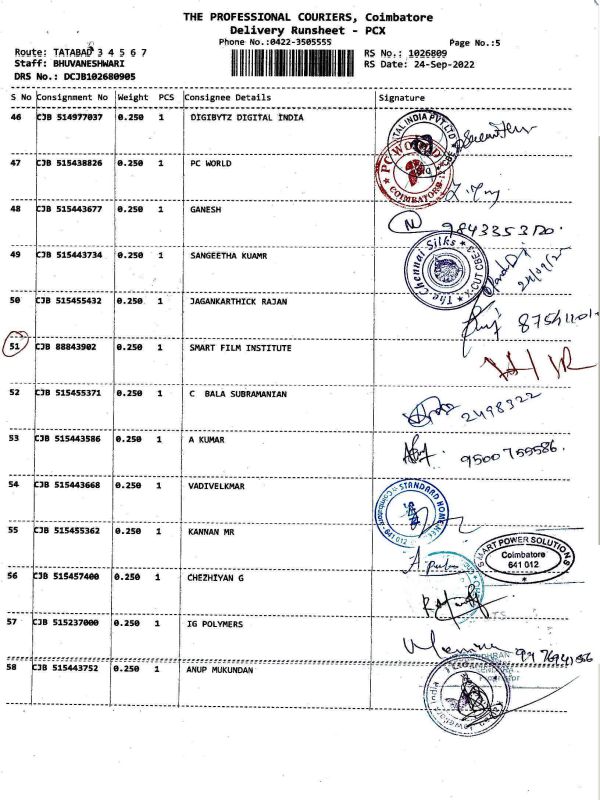 THE PROFESSIONAL COURIERS, Coimbatore
Delivery Runsheet - PCX
Phone No.:0422-3505555
Page No.:5
Route: TATABAD 3 4 5 6 7
RS No.: 1026809
Staff: BHUVANESHWARI
RS Date: 24-Sep-2022
DRS No.: DCJB102680905
S No Consignment No Weight PCS Consignee Details Signature
46 CJB 514977037 0.250 1 DIGIBYTZ DIGITAL INDIA
TAL INDIA PVT.LTD
47 CJB 515438826 0.250 1 PC WORLD
PC WORLD
COIMBATORE-12
48 CJB 515443677 0.250 1 GANESH
N
9843353120.
49 CJB 515443734 0.250 1 SANGEETHA KUAMR
The Chennai Silks * X-CUT CBE-3 *
50 CJB 515455432 0.250 1 JAGANKARTHICK RAJAN
51 CJB 88843902 0.250 1 SMART FILM INSTITUTE
52 CJB 515455371 0.250 1 C BALA SUBRAMANIAN
2498322
53 CJB 515443586 0.250 1 A KUMAR
9500755586.
54 CJB 515443668 0.250 1 VADIVELKMAR
STANDARD HOME
Coimbatore - 641 012
55 CJB 515455362 0.250 1 KANNAN MR
SMART POWER SOLUTIONS
Coimbatore
641 012
56 CJB 515457400 0.250 1 CHEZHIYAN G
57 CJB 515237000 0.250 1 IG POLYMERS
58 CJB 515443752 0.250 1 ANUP MUKUNDAN